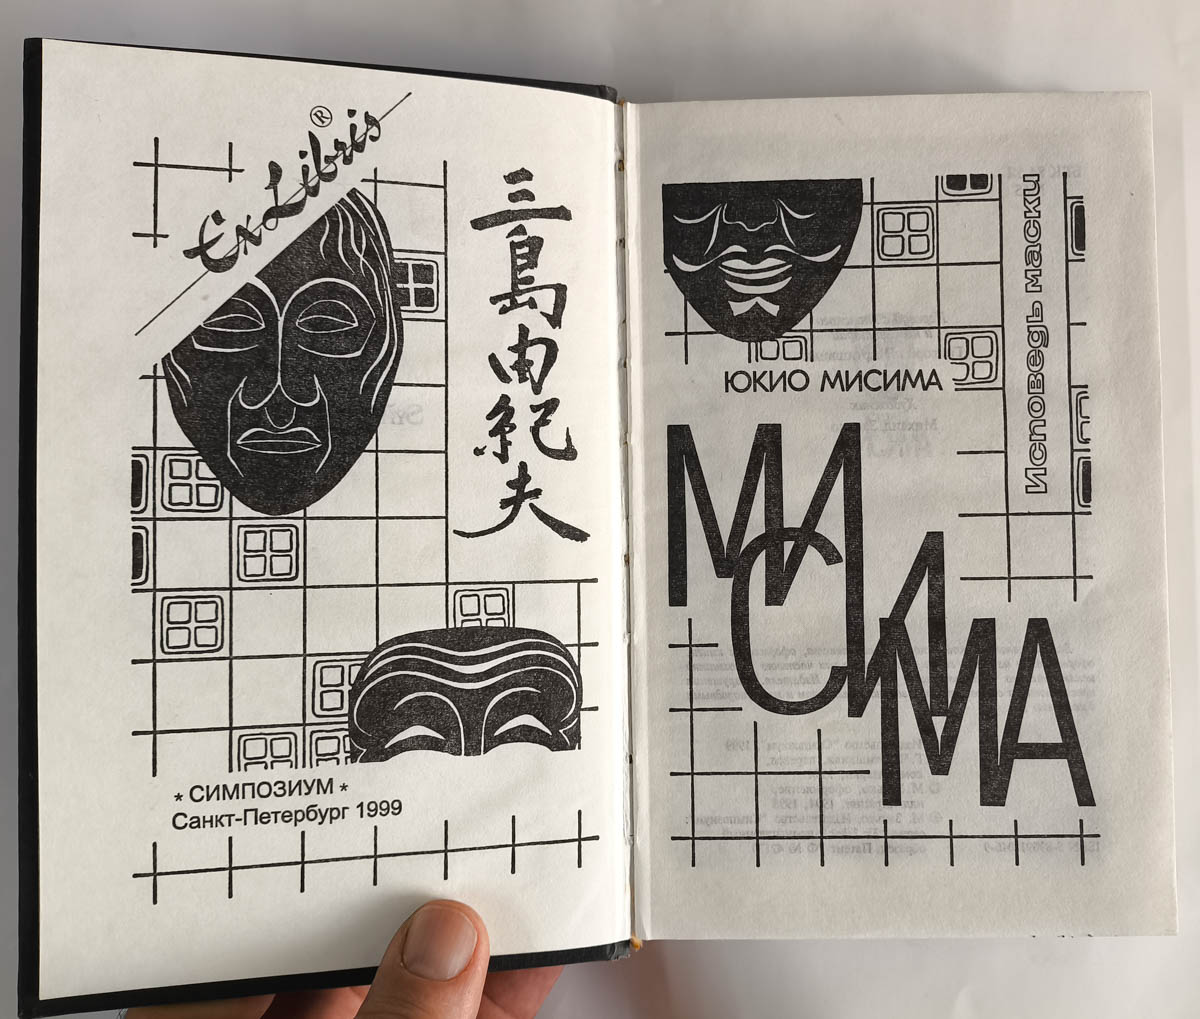 Ex Libris ®
三島由紀夫
* СИМПОЗИУМ *
Санкт-Петербург 1999
ЮКИО МИСИМА
Исповедь маски
МИ
СИ
МА